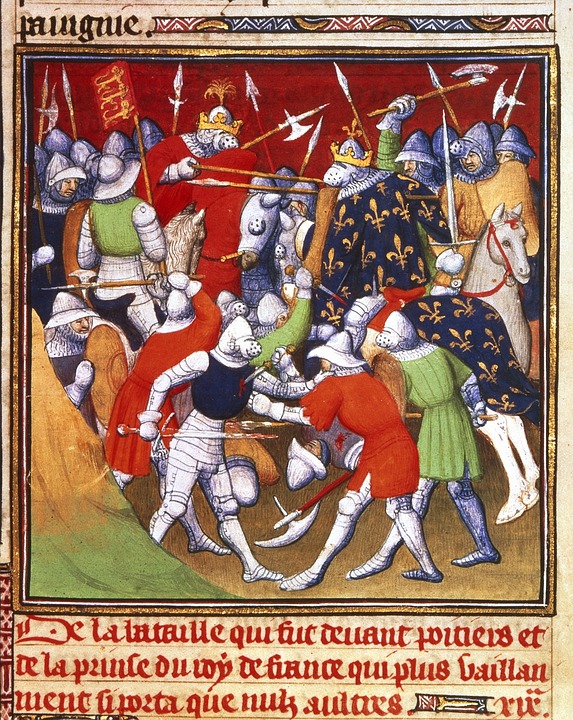 pauigne.
De la bataille qui fut deuant poitiers et
de la prinse du roy de france qui plus vaillan
ment si porta que nulz aultres. xix.